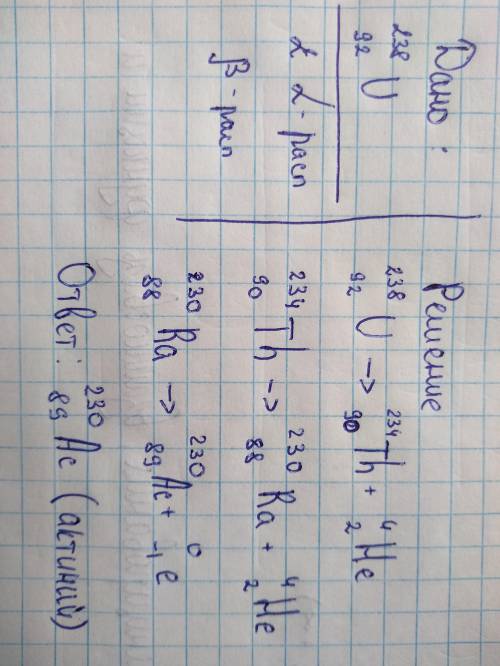 Дано:
²³⁸₉₂U
2 α-расп
β-расп
Решение
²³⁸₉₂U → ²³⁴₉₀Th + ⁴₂He
²³⁴₉₀Th → ²³⁰₈₈Ra + ⁴₂He
²³⁰₈₈Ra → ²³⁰₈₉Ac + ⁰₋₁e
Ответ: ²³⁰₈₉Ac (актиний)